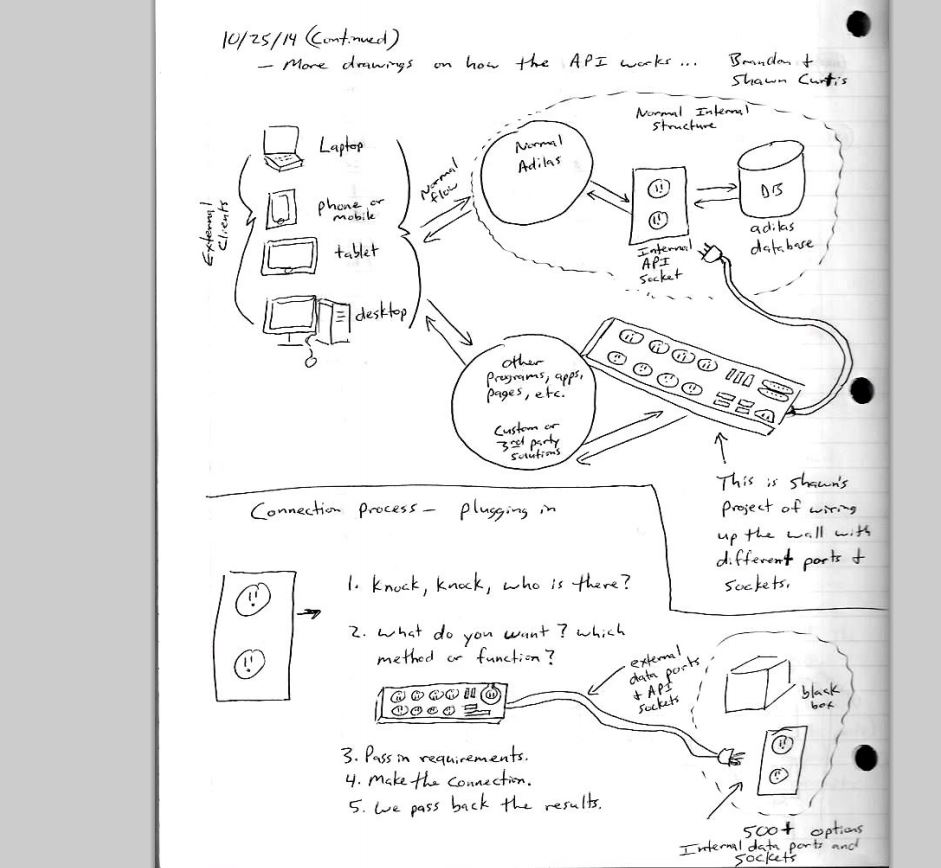 10/25/14 (Continued)
- More drawings on how the API works...
Brandon +
Shawn Curtis
External
Clients
Laptop
phone or
mobile
tablet
desktop
Normal
flow
Normal Internal
structure
Normal
Adilas
Internal
API
socket
DB
adilas
database
other
Programs, apps,
pages, etc.
Custom or
3rd party
solutions
This is Shawn's
project of wiring
up the wall with
different ports +
sockets.
Connection Process - plugging in
1. Knock, Knock, who is there?
2. What do you want? which
method or function?
external
data ports
+ API
sockets
black
box
3. Pass in requirements.
4. Make the connection.
5. We pass back the results.
500+ options
Internal data ports and
sockets